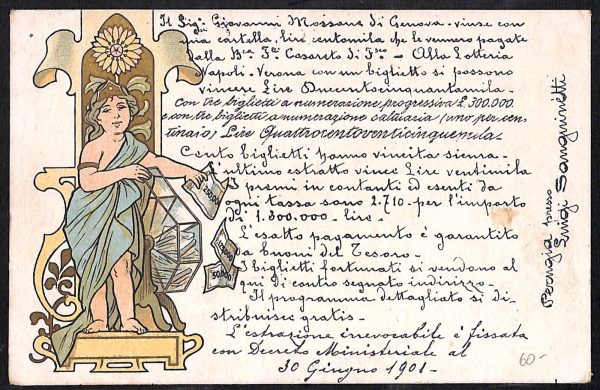 Il Sig. Giovanni Mossone di Genova - vinse con
una cartella, lire centomila che le vennero pagate
dalla Bca Fr. Casareto di Fsco - Alla Lotteria
Napoli - Verona con un biglietto si possono
vincere Lire Duecentocinquantamila -
Con tre biglietti a numerazione progressiva £. 300.000.
e con tre biglietti a numerazione saltuaria (uno per cen-
tinaio) Lire Quattrocentoventicinquemila -
Cento biglietti hanno vincita sicura -
L'ultimo estratto vince Lire ventimila
I premi in contanti ed esenti da
ogni tassa sono 2.710 - per l'importo
di 1.300.000 - lire -
L'esatto pagamento è garantito
da buoni del Tesoro -
I biglietti fortunati si vendono al
qui di contro segnato indirizzo -
Il programma dettagliato si di-
stribuisce gratis -
L'estrazione irrevocabile è fissata
con Decreto Ministeriale al
30 Giugno 1901 -
Perugia presso
Luigi Sanguinetti
250.000
100.000
50.000
60 -